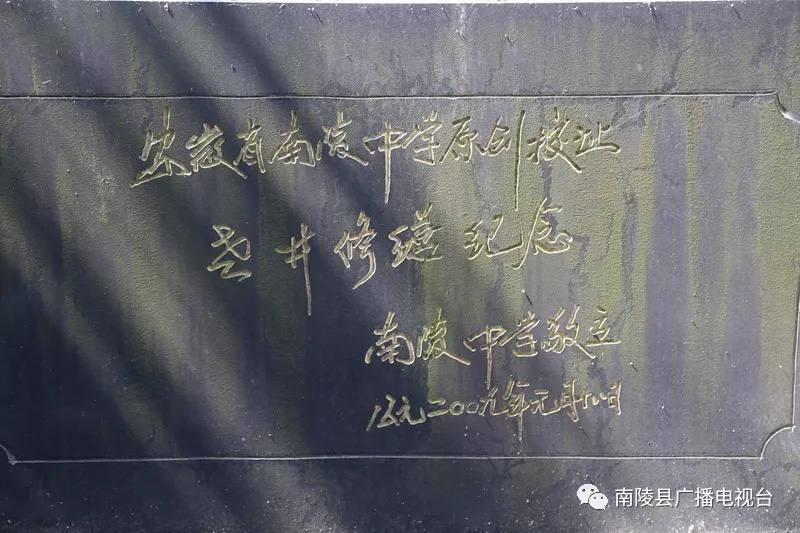 安徽省南陵中学原创校址
老井修缮纪念
南陵中学敬立
公元二〇〇九年元月十八日
南陵县广播电视台